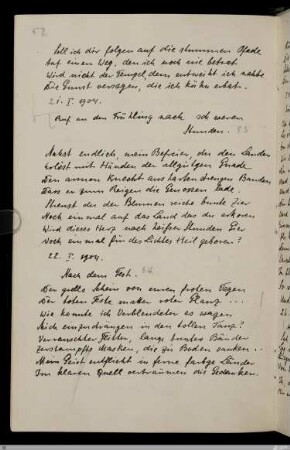 52
Soll ich dir folgen auf die stummen Pfade
Auf einen Weg, den ich noch nie betrat
Wird nicht der Tempel, dem entweiht ich nahte
Die Gunst versagen, die ich kühn erbat.
21. I. 1904.
Auf an den Frühling nach schweren
Stunden. 53
Nahst endlich, mein Befreier, der den Landen
erlöst mit Händen der allgütgen Gnade
Den armen Knecht aus harten strengen Banden
Dass er zum Reigen die Genossen lade.
Streust du der Blumen reiche bunte Zier
Noch ein mal auf das Land das du erkoren
Wird dieses Herz nach heißen Stunden hier
Noch ein mal für des Lichtes Heil geboren?
22. I. 1904.
Nach dem Fest. 54
Der grelle Schein von euren frohen Tagen
Der hohen Feste matter roter Glanz . . .
Wie konnte ich Verblendeter es wagen
Mich einzudrängen in den tollen Tanz?
Verrauschter Flitter, langer bunter Bänder
Zerstampfte Masken, die zu Boden sanken . .
Mein Geist entflieht in ferne farbge Länder
Im klaren Quell verträumen die Gedanken.